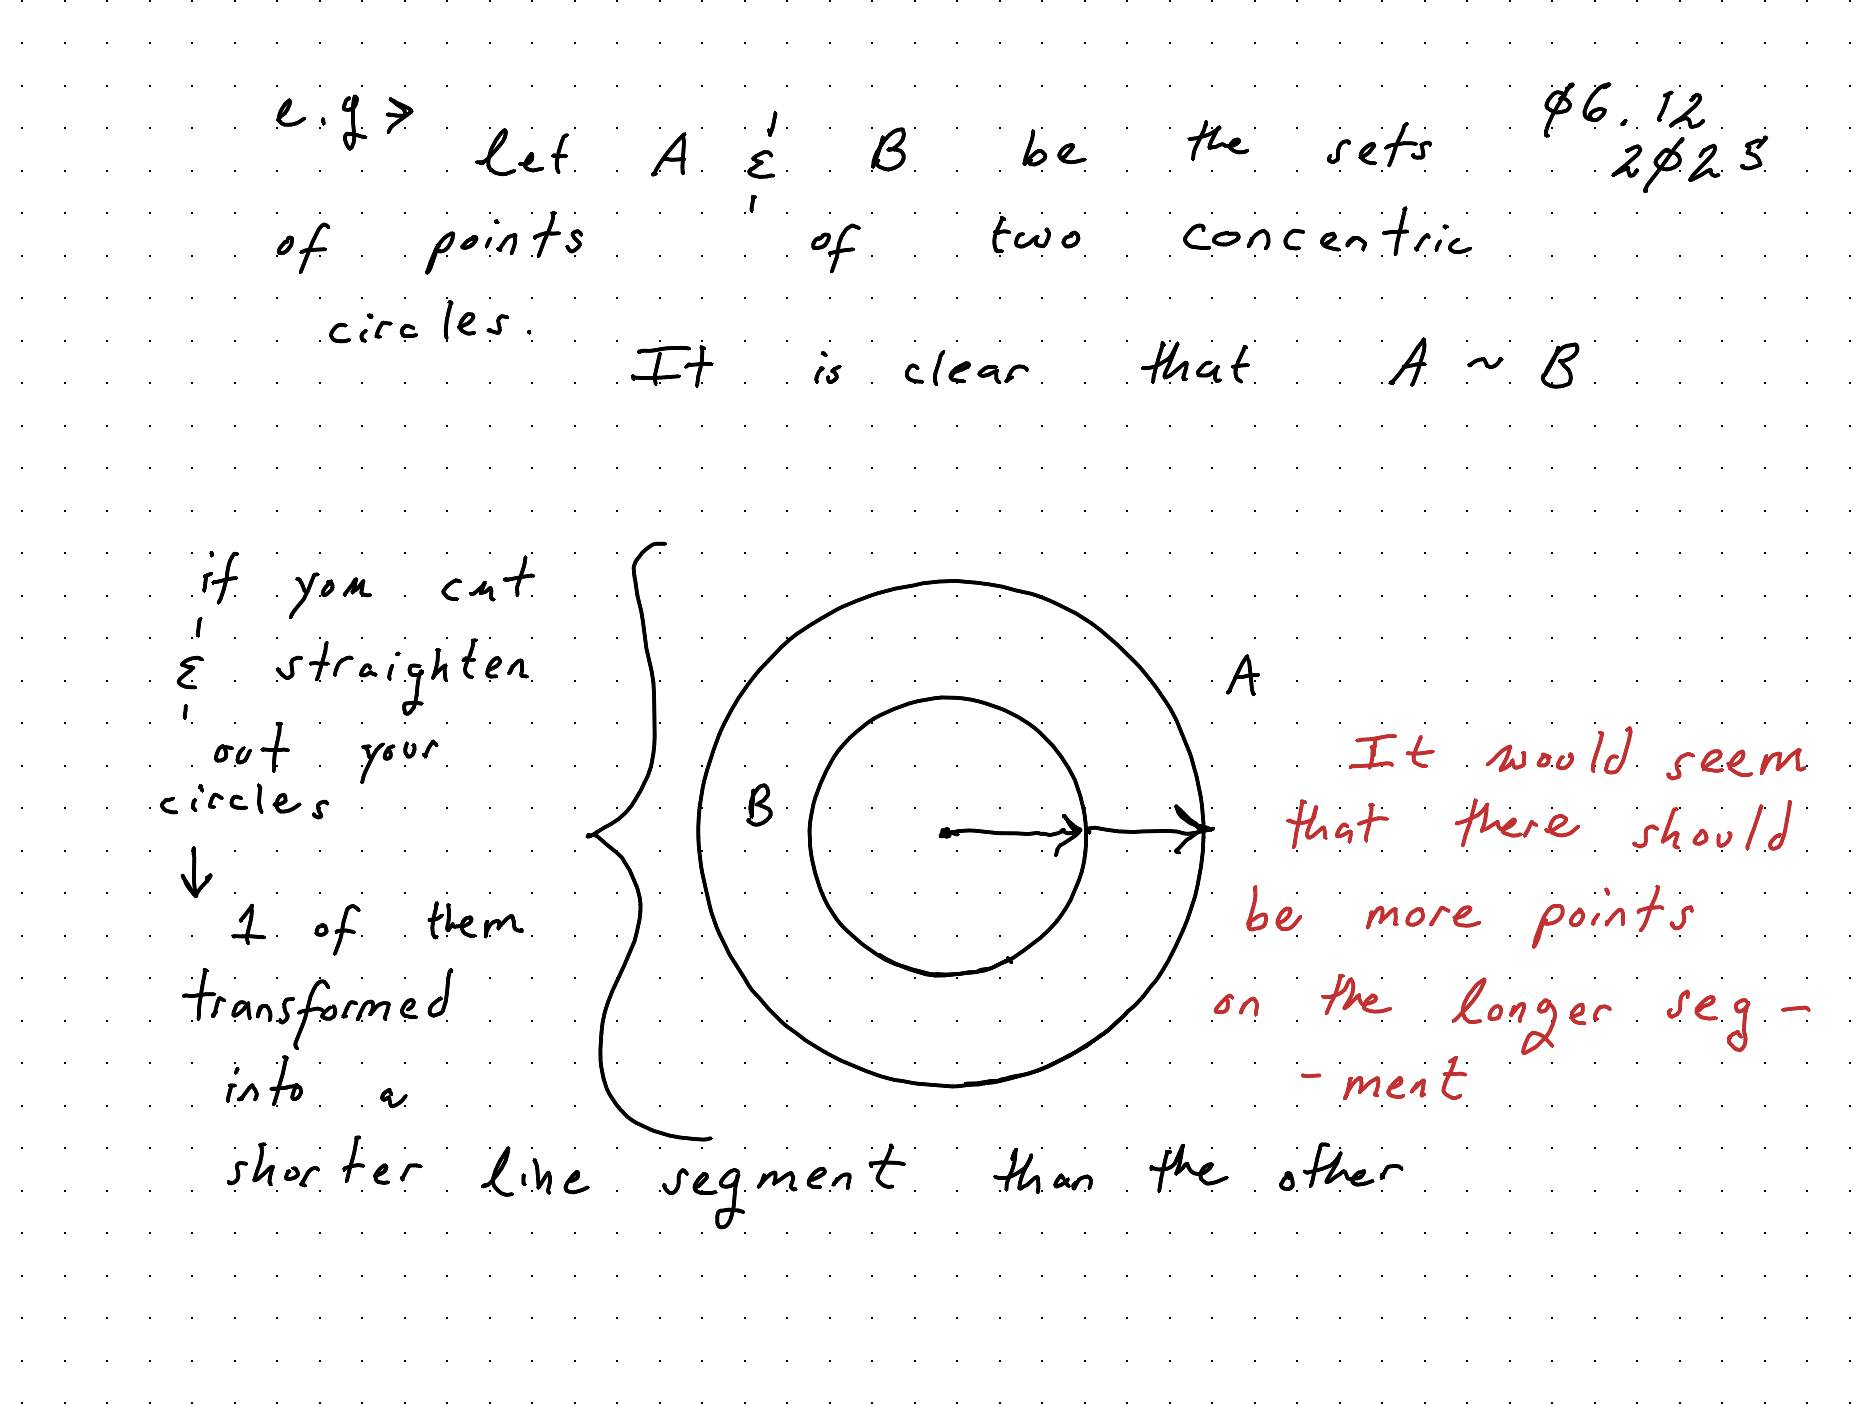 e.g → let A & B be the sets
of points of two concentric
circles.
It is clear that A ~ B
06.12
2025
if you cut
& straighten
out your
circles
↓
1 of them
transformed
into a
shorter line segment than the other
A
B
It would seem
that there should
be more points
on the longer seg-
-ment